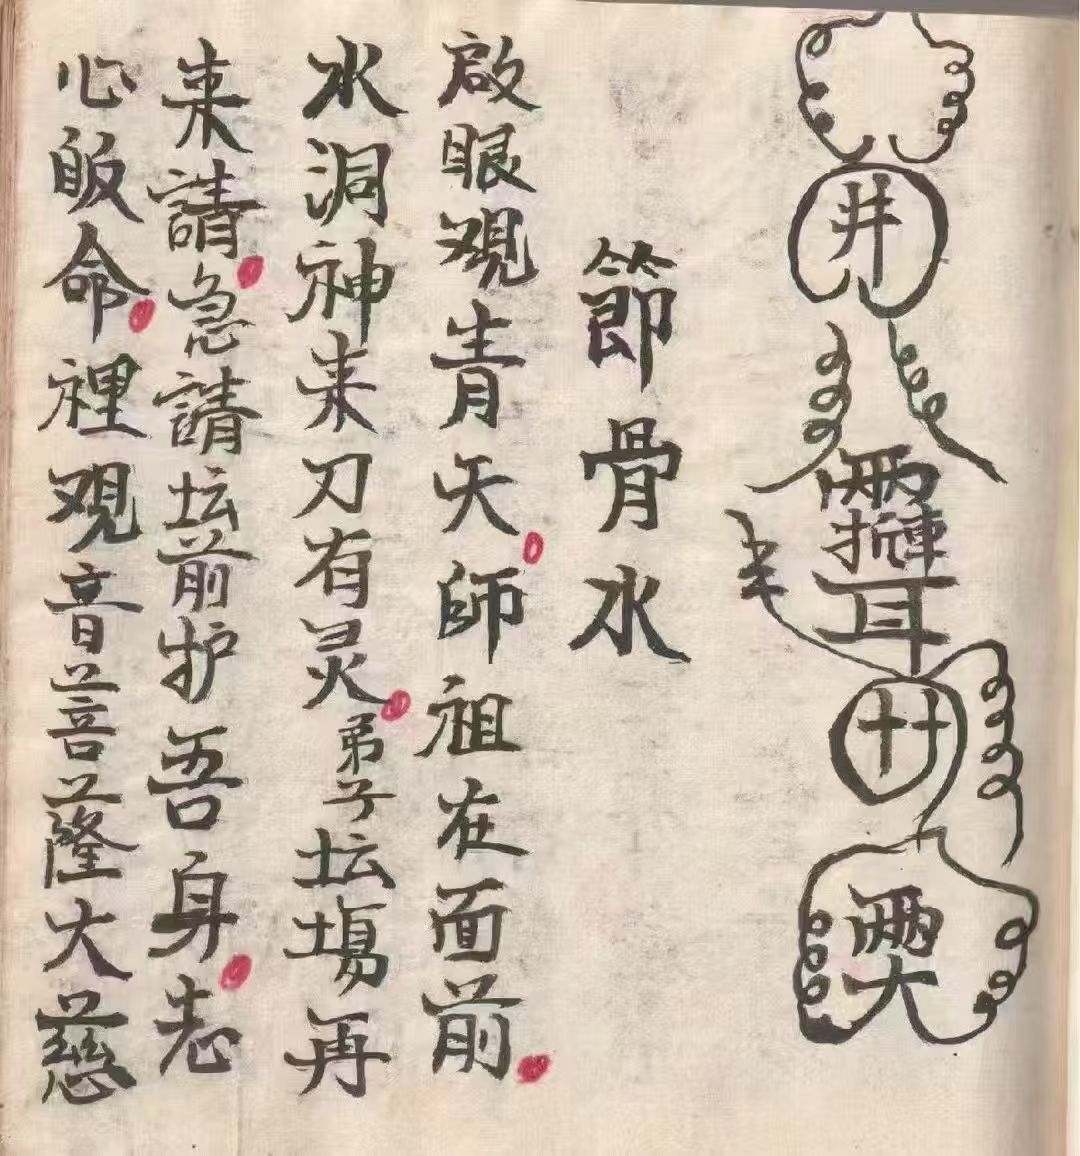 井
耳
廿
大
節骨水
啟眼观青天師祖在面前
水洞神来刀有灵弟子坛場再
来請急請坛前护吾身志
心皈命裡观音菩隆大慈